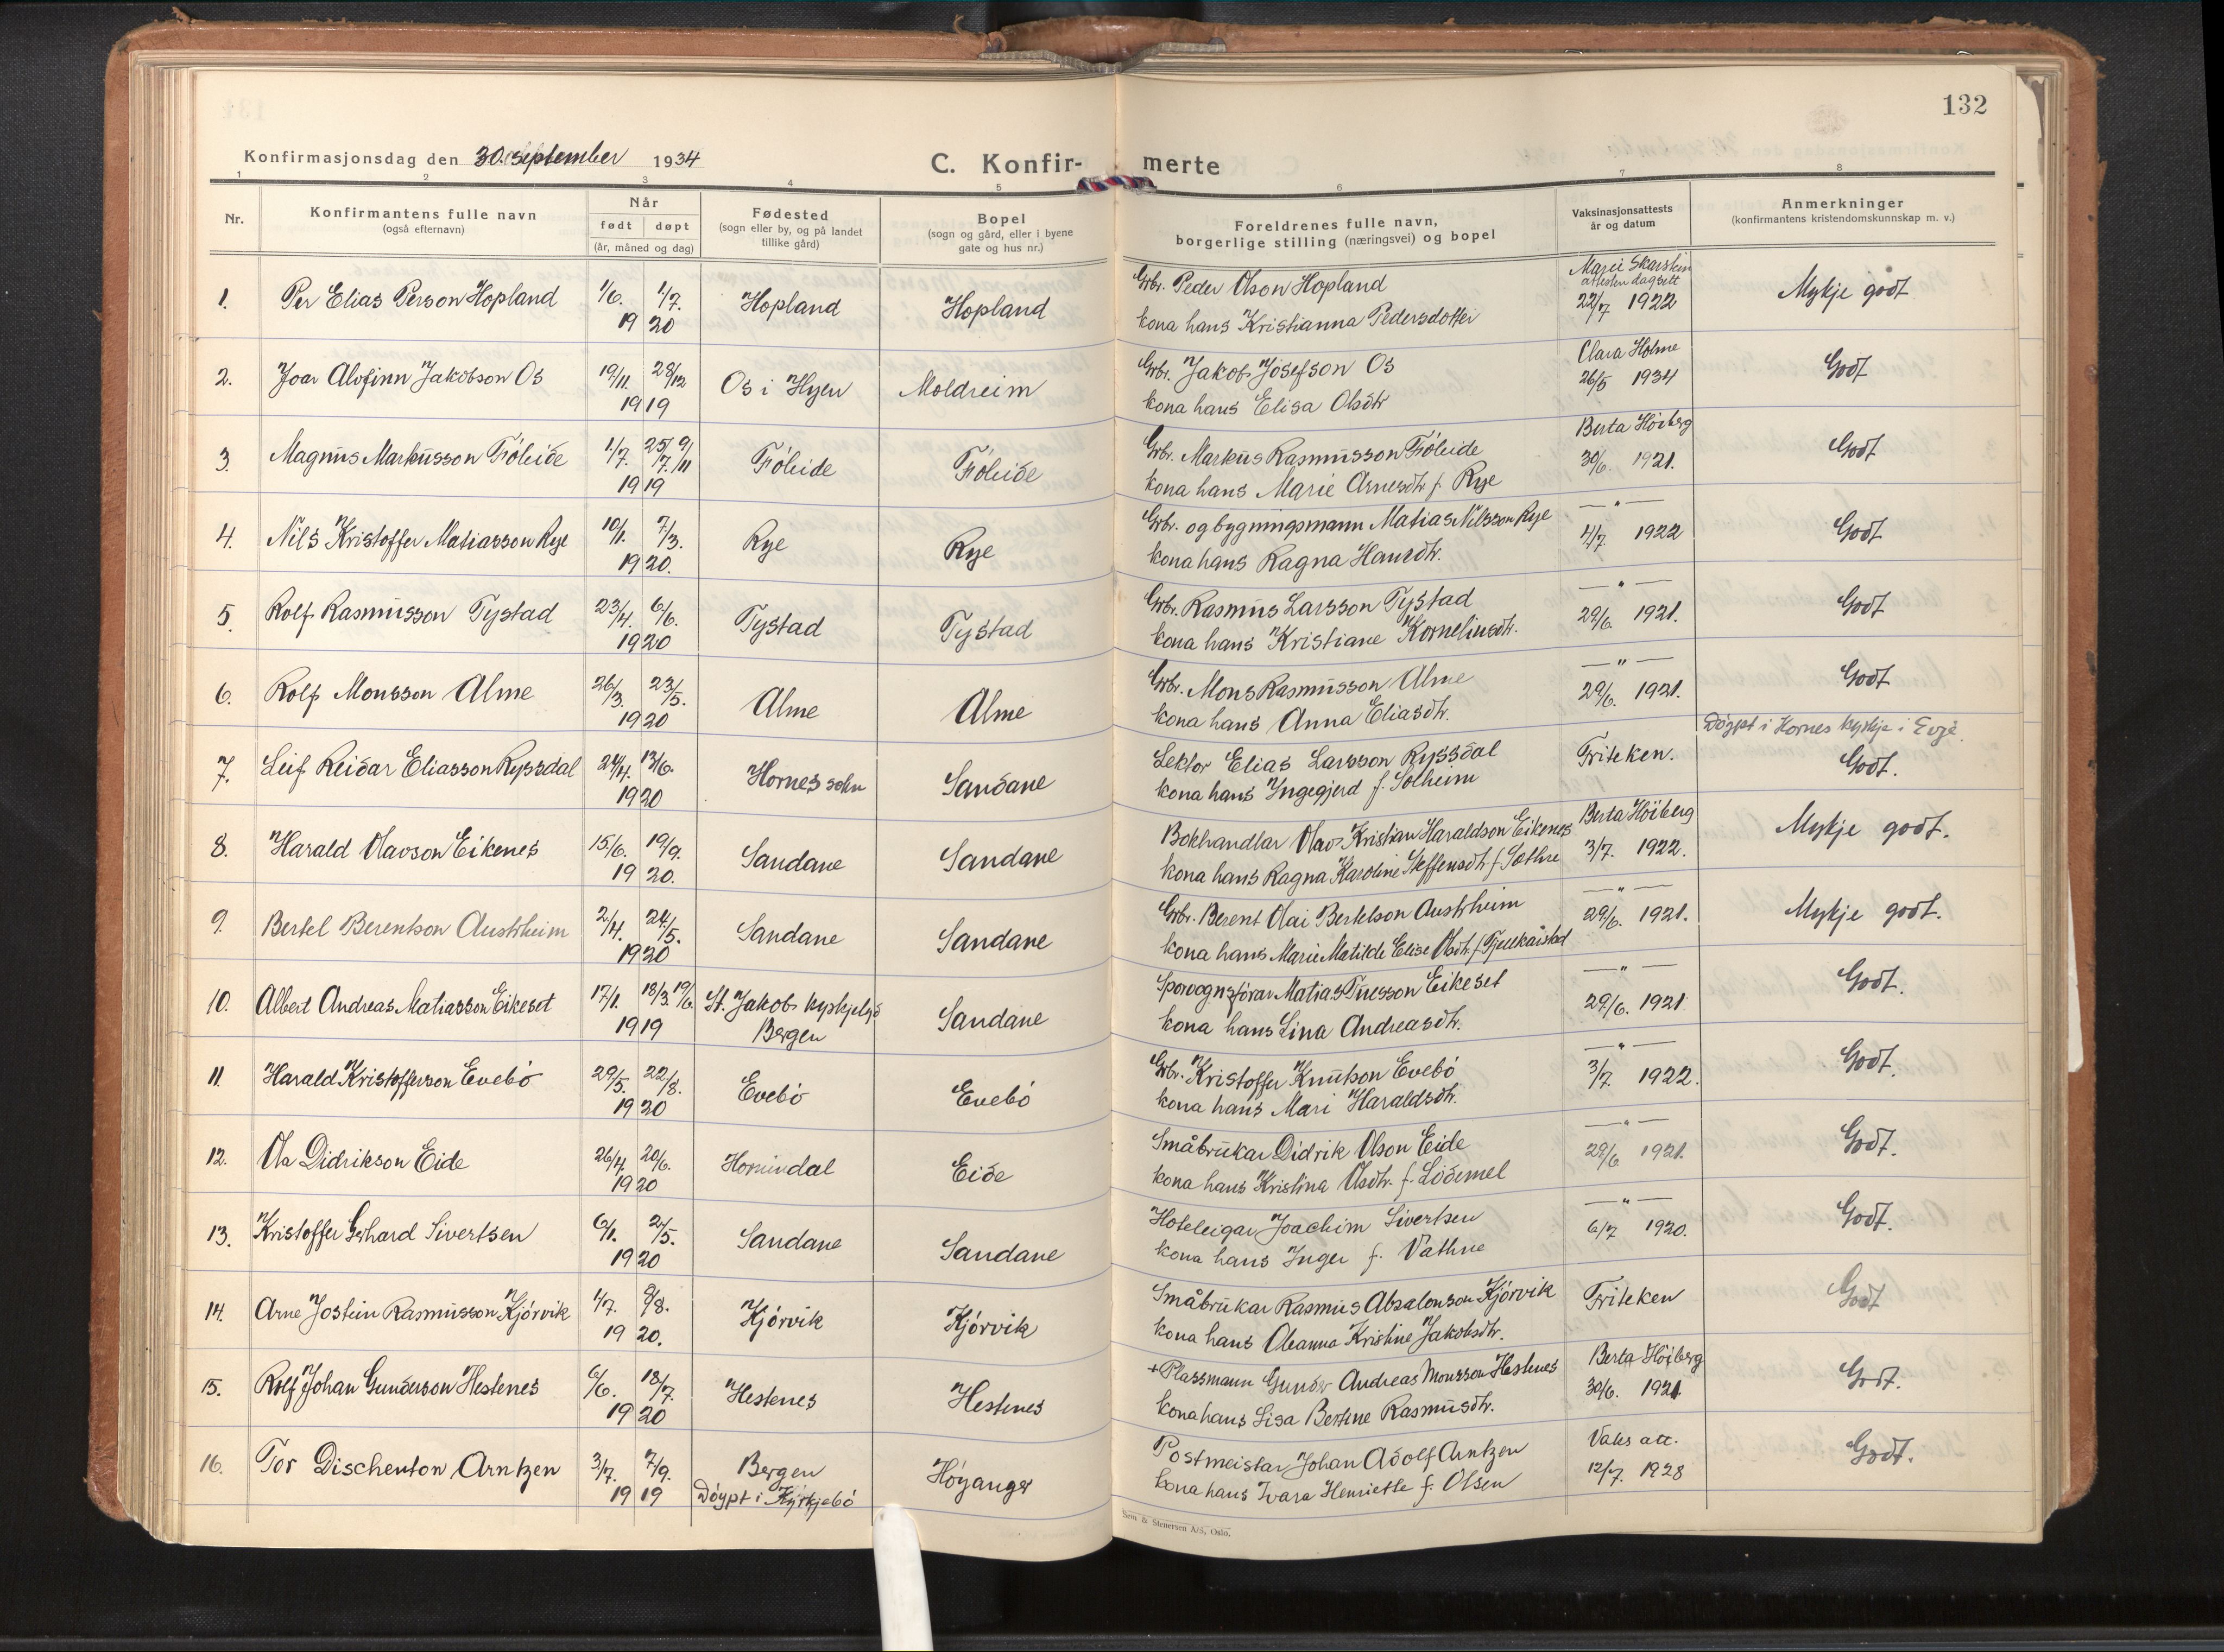 132
Konfirmasjonsdag den 30. september 1934
C. Konfir-merte
1 2 3 4 5 6 7 8
Nr.
Konfirmantens fulle navn
(også efternavn)
Når
født døpt
(år, måned og dag)
Fødested
(sogn eller by, og på landet
tillike gård)
Bopel
(sogn og gård, eller i byene
gate og hus nr.)
Foreldrenes fulle navn,
borgerlige stilling (næringsvei) og bopel
Vaksinasjonsattests
år og datum
Anmerkninger
(konfirmantens kristendomskunnskap m. v.)
1. Per Elias Person Hopland 1/6. 1/7. 1920 Hopland Hopland
Grbr. Peder Olson Hopland
kona hans Kristianna Pedersdotter
Marei Skarstein
attesten dagsett
22/7 1922
Mykje godt
2. Joar Alvfinn Jakobson Os 19/11. 28/12 1919 Os i Hyen Moldreim
Grbr. Jakob Josefson Os
kona hans Elisa Olsdtr
Clara Holme
26/5 1934
Godt
3. Magnus Markusson Fóleide 1/7. 25/7. 9/11 1919 Fóleide Fóleide
Grbr. Markus Rasmusson Fóleide
kona hans Marie Arnesdtr f. Rye
Berta Höiberg
30/6. 1921.
Godt
4. Nils Kristoffer Matiasson Rye 10/1. 7/3. 1920. Rye Rye
Grbr. og bygningsmann Matias Nilsson Rye
kona hans Ragna Hansdtr.
— " —
4/7 1922
Godt
5. Rolf Rasmusson Tystad 23/4. 6/6. 1920 Tystad Tystad
Grbr. Rasmus Larsson Tystad
kona hans Kristiane Korneliusdtr.
— " —
29/6. 1921.
Godt
6. Rolf Monsson Alme 26/3. 23/5. 1920 Alme Alme
Grbr. Mons Rasmusson Alme
kona hans Anna Eliasdtr.
— " —
29/6. 1921.
Godt
7. Leif Reidar Eliasson Ryssdal 24/4. 13/6. 1920 Hornes sokn Sandane
Lektor Elias Larsson Ryssdal
kona hans Ingegjerd f. Solheim
Friteken.
Döypt i Hornes kyrkje i Evje.
Godt.
8. Harald Olavson Eikenes 15/6. 19/9. 1920. Sandane Sandane
Bokhandlar Olav Kristian Haraldson Eikenes
kona hans Ragna Karoline Steffensdtr f. Sæthre
Berta Höiberg
3/7. 1922.
Mykje godt.
9. Bertel Berentson Austrheim 2/4. 24/5. 1920 Sandane Sandane
Grbr. Berent Olai Bertelson Austrheim
kona hans Marie Matilde Elise Olsdtr. f. Fjellkårstad
— " —
29/6. 1921.
Mykje godt.
10. Albert Andreas Matiasson Eikeset 17/1. 18/3. 19/6. 1919 St. Jakobs kyrkjelyd
Bergen Sandane
Matias Tuesson Eikeset
kona hans Lina Andreasdtr.
— " —
29/6. 1921
Godt.
11. Harald Kristofferson Evebó 29/5. 22/8. 1920 Evebó Evebó
Grbr. Kristoffer Knutson Evebó
kona hans Mari Haraldsdtr.
— " —
3/7. 1922.
Godt.
12. Ola Didrikson Eide 26/4 20/6. 1920 Hornindal Eide
Småbrukar Didrik Olson Eide
kona hans Kristina Olsdtr. f. Lódemel
— " —
29/6 1921.
Godt.
13. Kristoffer Gerhard Sivertsen 6/1. 2/5. 1920 Sandane Sandane
Hoteleigar Joachim Sivertsen
kona hans Inger f. Vathne
— " —
6/7 1920.
Godt.
14. Arne Jostein Rasmusson Kjórvik 4/7. 8/8. 1920. Kjórvik Kjórvik
Småbrukar Rasmus Absalonson Kjórvik
kona hans Oleanna Kristine Jakobsdtr.
Friteken
Godt
15. Rolf Johan Gunderson Hestenes 6/6. 18/7. 1920 Hestenes Hestenes
+Plassmann Gunder Andreas Monsson Hestenes
kona hans Lisa Bertine Rasmusdtr.
Berta Höiberg
30/6. 1921
Godt.
16. Tor Dischenton Arntzen 3/7. 7/9. 1919 Bergen
Dóypt i Kyrkjebó Hóyanger
Postmeistar Johan Adolf Arntzen
kona hans Ivara Henriette f. Olsen
Vaks att.
12/7. 1928
Godt.
Sem & Stenersen A/S, Oslo.